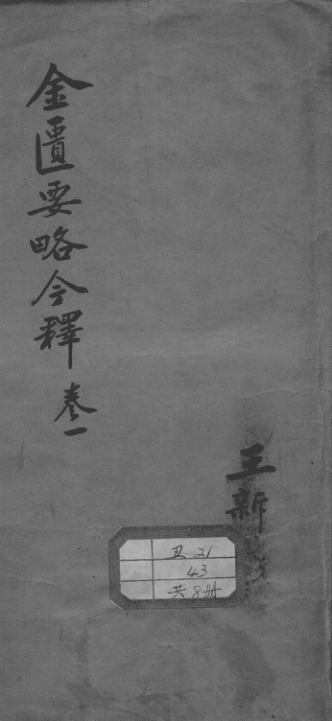 金匱要略今釋 卷一
王新
丑 21
43
共 8册